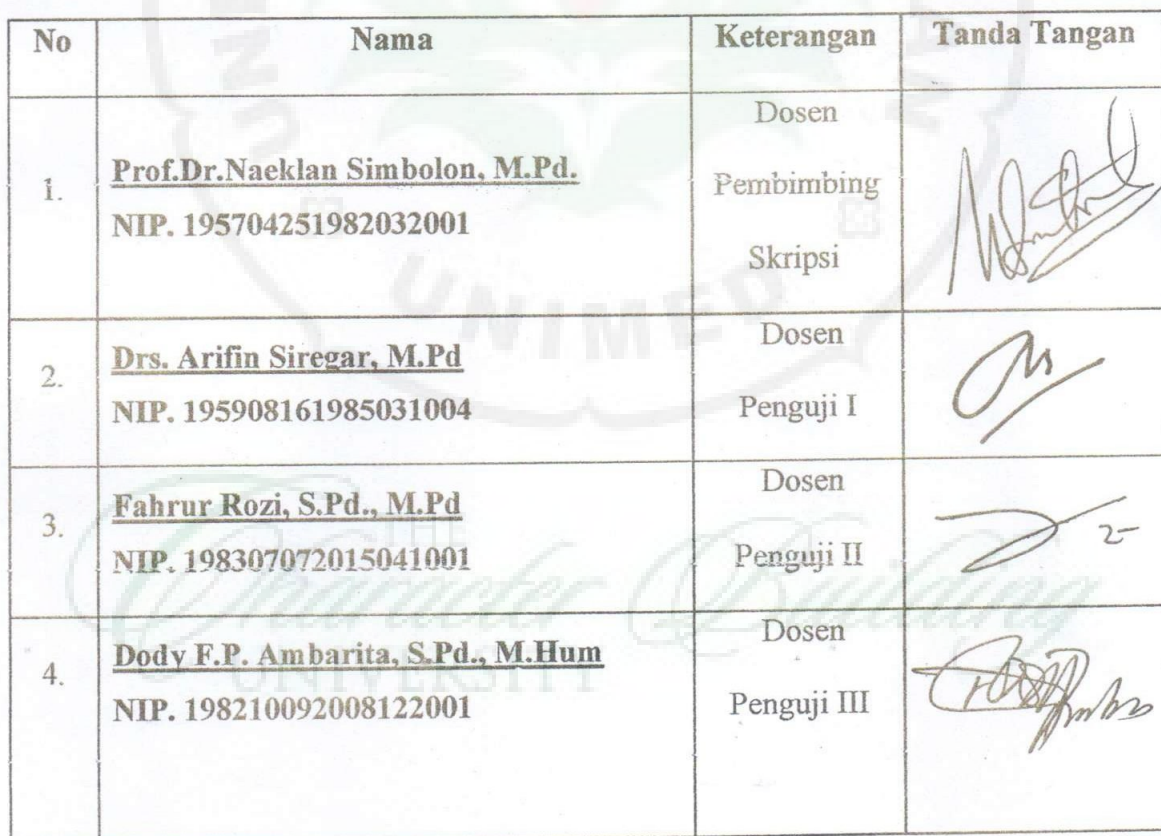 No Nama Keterangan Tanda Tangan
1.
Prof.Dr.Naeklan Simbolon, M.Pd.
NIP. 195704251982032001
Dosen
Pembimbing
Skripsi
2.
Drs. Arifin Siregar, M.Pd
NIP. 195908161985031004
Dosen
Penguji I
3.
Fahrur Rozi, S.Pd., M.Pd
NIP. 198307072015041001
Dosen
Penguji II
4.
Dody F.P. Ambarita, S.Pd., M.Hum
NIP. 198210092008122001
Dosen
Penguji III
UNIMED
THE
Character Building
UNIVERSITY